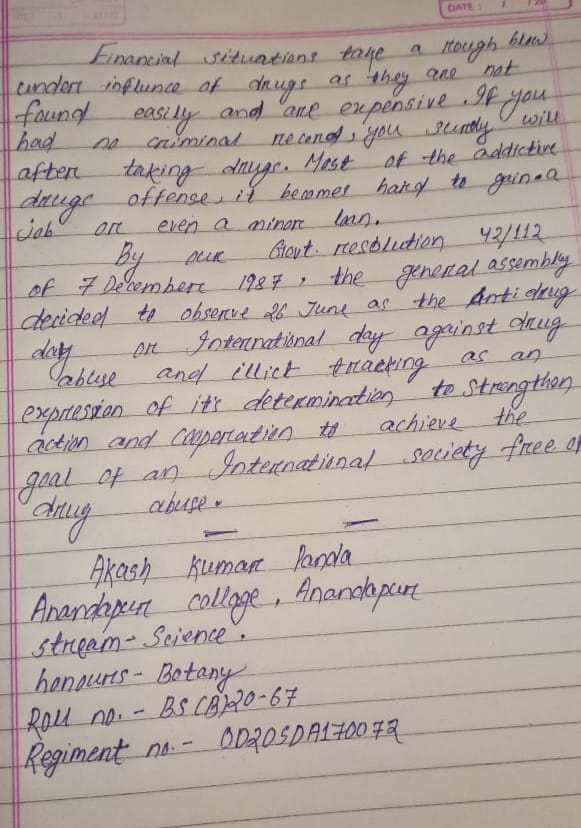 DATE :
Financial situations take a rough blow
under influnce of drugs as they are not
found easily and are expensive. If you
had no criminal record, you surely will
after taking drugs. Most of the addictive
drugs offense, it becomes hard to gain a
job or even a minor loan.
By our Govt. resolution 42/112
of 7 December 1987, the general assembly
decided to observe 26 June as the Anti drug
day or International day against drug
abuse and illict tracking as an
expression of it's determination to strengthen
action and cooperation to achieve the
goal of an International society free of
drug abuse.
Akash Kumar Panda
Anandapur collage, Anandapur
stream - Science.
honours - Botany
Roll no. - BS(B)20-67
Regiment no. - OD20SDA170072